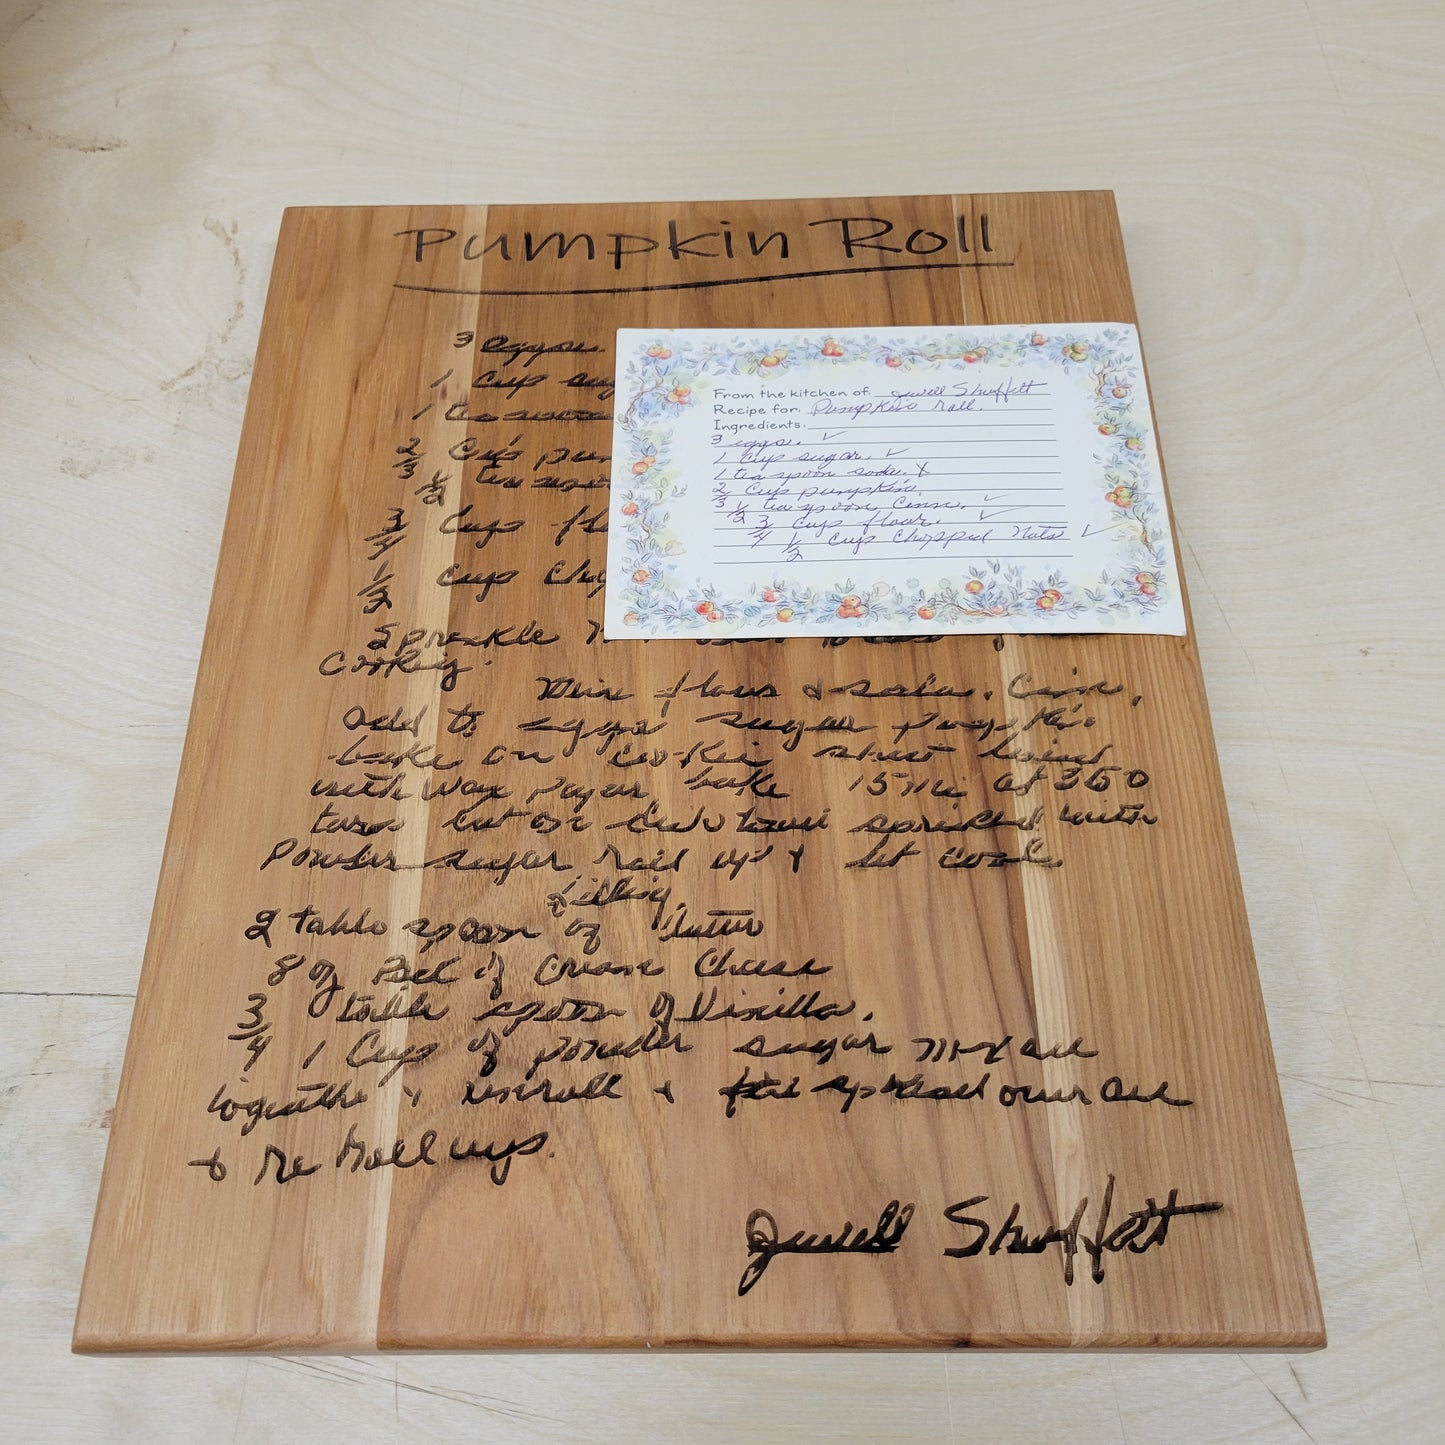 Pumpkin Roll
3 eggs
1 Cup sug
1 tea spoon
2/3 Cup pum
1/2 tea spoo
3/4 Cup fl
1/2 Cup Cho
Sprinkle
Cooking.
Mix flour & soda. Cinn.
add to eggs sugar pumpkin
bake on Cookie sheet lined
with wax paper bake 15 min at 350
turn out on towel sprinkled with
powder sugar roll up & let cool
filling
2 table spoon of butter
8 oz Pack of Cream Cheese
3/4 table spoon of Vinilla.
1 Cup of powder sugar mix all
together & unroll & spread over all
& Re Roll up.
Jewell Shuffett
From the kitchen of: Jewell Shuffett
Recipe for: Pumpkin roll.
Ingredients:
3 eggs. ✓
1 Cup sugar. ✓
1 tea spoon soda. X
2/3 Cup pumpkin.
1/2 tea spoon Cinn. ✓
3/4 Cup flour. ✓
1/2 Cup Chopped Nuts ✓